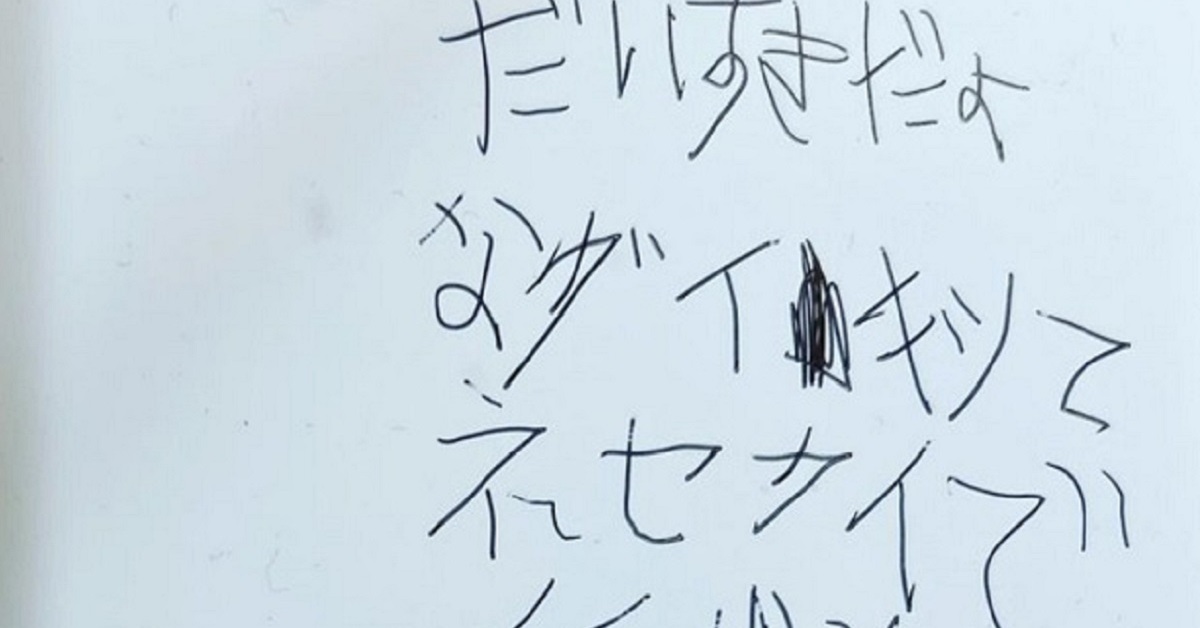 だいすきだよ
ながイキしてネ
セカイで